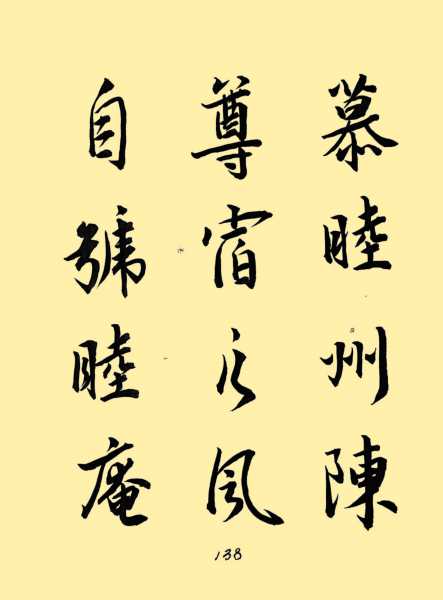 慕睦州陳
尊宿之風
自號睦庵
138